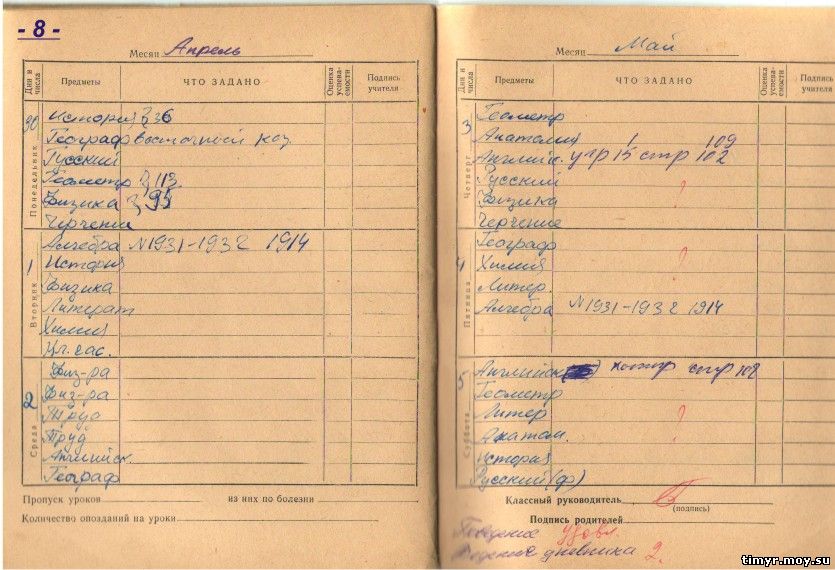 - 8 -
Месяц Апрель
Дни и числа Предметы ЧТО ЗАДАНО Оценка успеваемости Подпись учителя
30 Понедельник
История § 36
Географ восточной каз.
Русский
Геометр § 113.
Физика § 95
Черчение
1 Вторник
Алгебра N1931-1932 1914
История
Физика
Литерат
Химия
Кл. час.
2 Среда
Физ-ра
Физ-ра
Труд
Труд
Английск.
Географ
Пропуск уроков из них по болезни
Количество опозданий на уроки
Месяц Май
Дни и числа Предметы ЧТО ЗАДАНО Оценка успеваемости Подпись учителя
3 Четверг
Геометр
Анатомия 109
Английс. упр 15 стр 102
Русский
Физика ?
Черчение
4 Пятница
Географ
Химия ?
Литер.
Алгебра N1931-1932 1914
5 Суббота
Английск стр 102
Геометр
Литер ?
Анатом. ?
История
Русский (ф)
Классный руководитель
(подпись)
Подпись родителей
Поведение удовл.
Ведение дневника 2.
timyr.moy.su